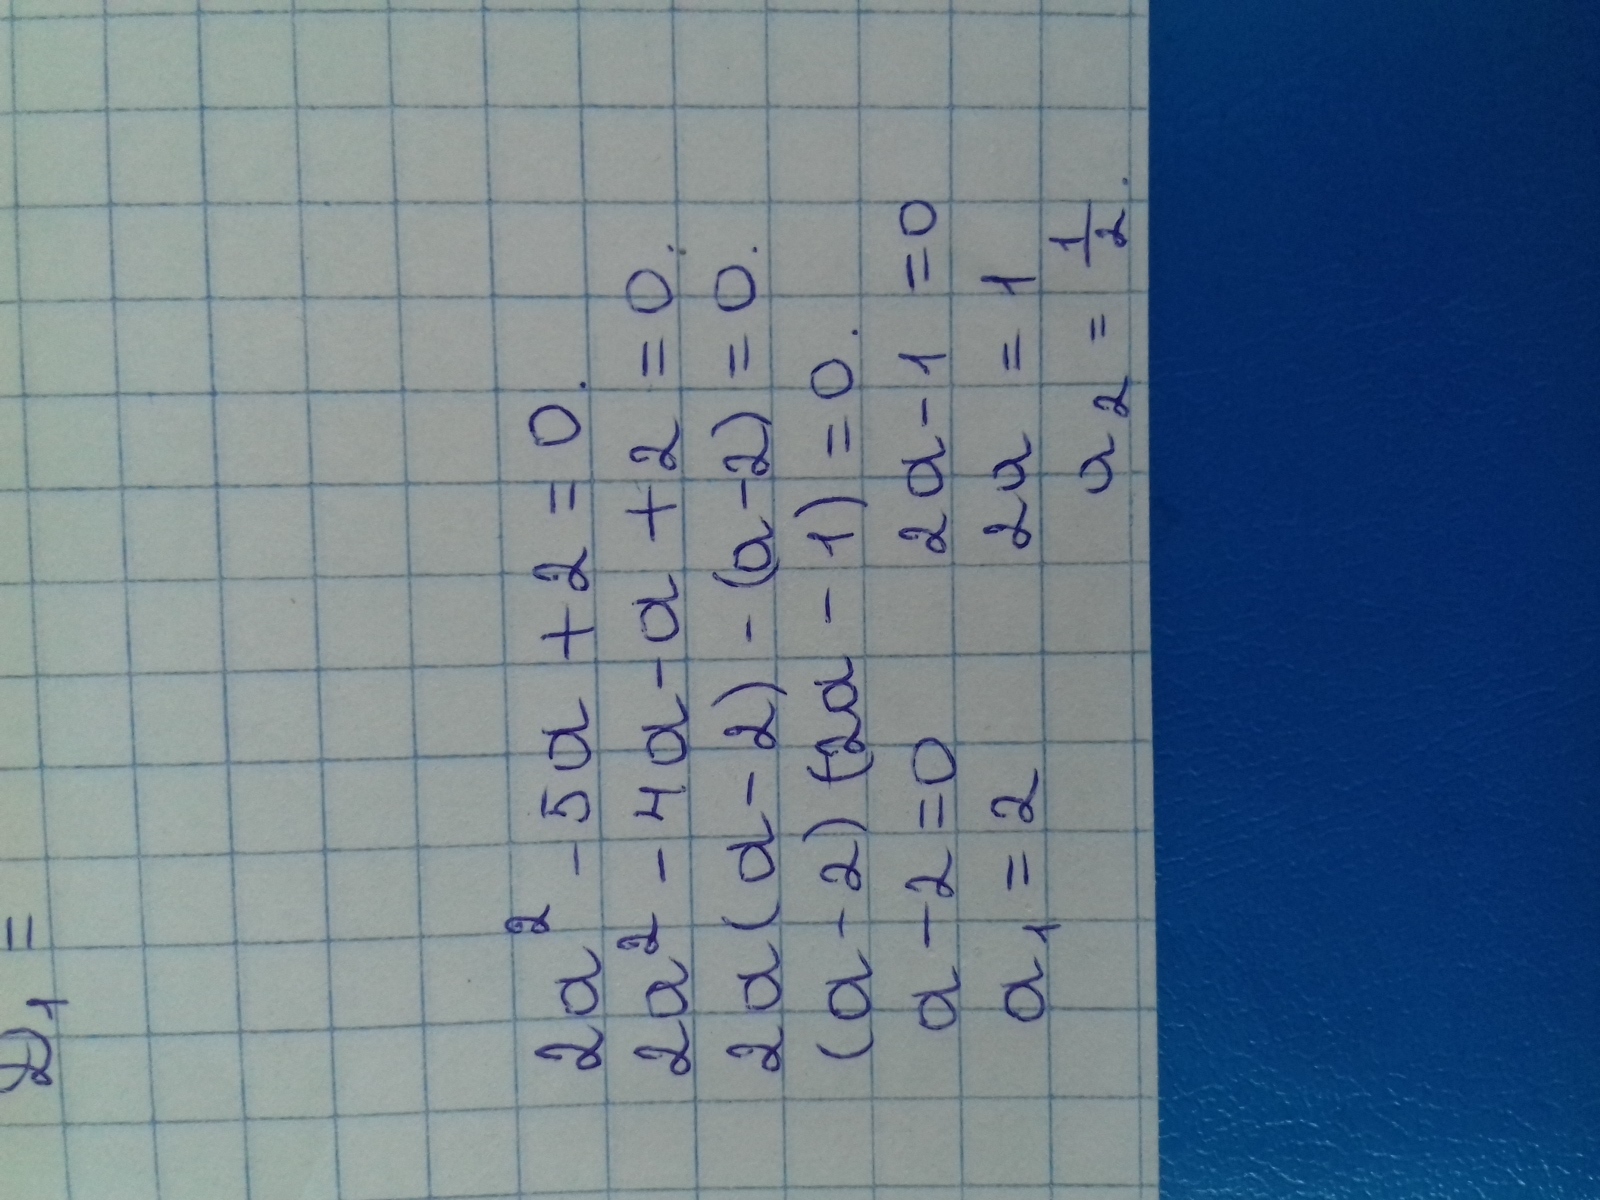 2)₁ =
2a² - 5a + 2 = 0.
2a² - 4a - a + 2 = 0.
2a(a - 2) - (a - 2) = 0.
(a - 2)(2a - 1) = 0.
a - 2 = 0 2a - 1 = 0
a₁ = 2 2a = 1
a₂ = 1/2.